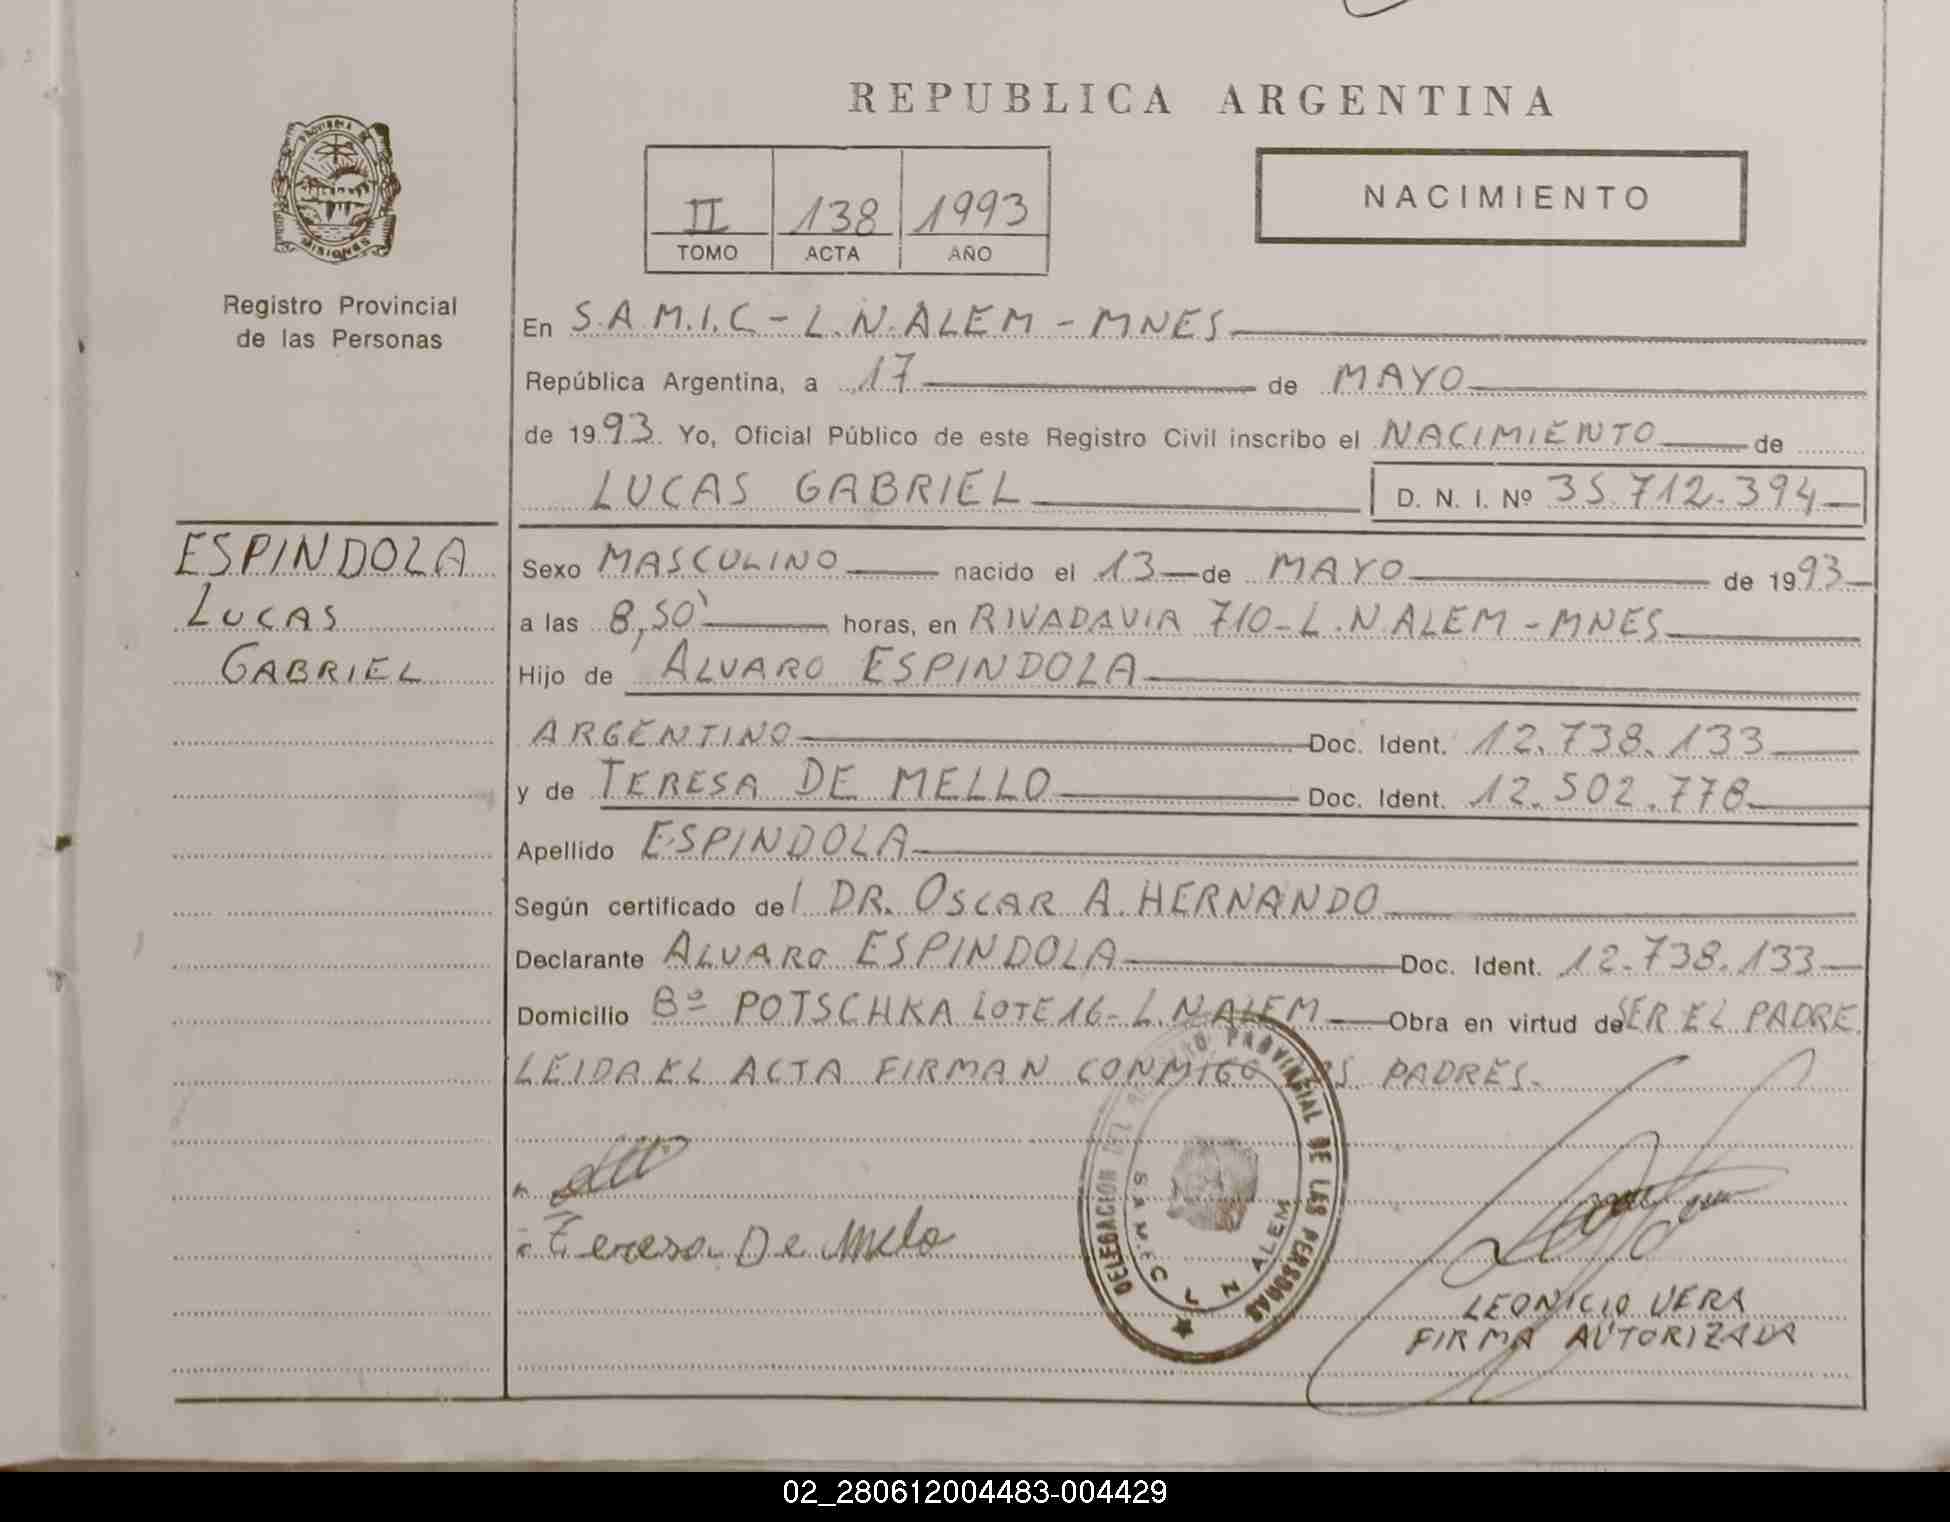 REPUBLICA ARGENTINA
PROVINCIA DE
MISIONES
Registro Provincial
de las Personas
II 138 1993
TOMO ACTA AÑO
NACIMIENTO
En S.A.M.I.C - L.N.ALEM - MNES
República Argentina, a 17 de MAYO
de 1993. Yo, Oficial Público de este Registro Civil inscribo el NACIMIENTO de
LUCAS GABRIEL D. N. I. Nº 35.712.394
ESPINDOLA
LUCAS
GABRIEL
Sexo MASCULINO nacido el 13 de MAYO de 1993
a las 8,50' horas, en RIVADAVIA 710-L.N.ALEM - MNES
Hijo de ALVARO ESPINDOLA
ARGENTINO Doc. Ident. 12.738.133
y de TERESA DE MELLO Doc. Ident. 12.502.778
Apellido ESPINDOLA
Según certificado del DR. OSCAR A. HERNANDO
Declarante ALVARO ESPINDOLA Doc. Ident. 12.738.133
Domicilio Bº POTSCHKA LOTE 16- L.N.ALEM Obra en virtud de SER EL PADRE.
LEIDA EL ACTA FIRMAN CONMIGO PADRES.
Teresa De Melo
DELEGACION DEL PROVINCIAL DE LAS PERSONAS
L N ALEM
LEONICIO VERA
FIRMA AUTORIZADA
02_280612004483-004429